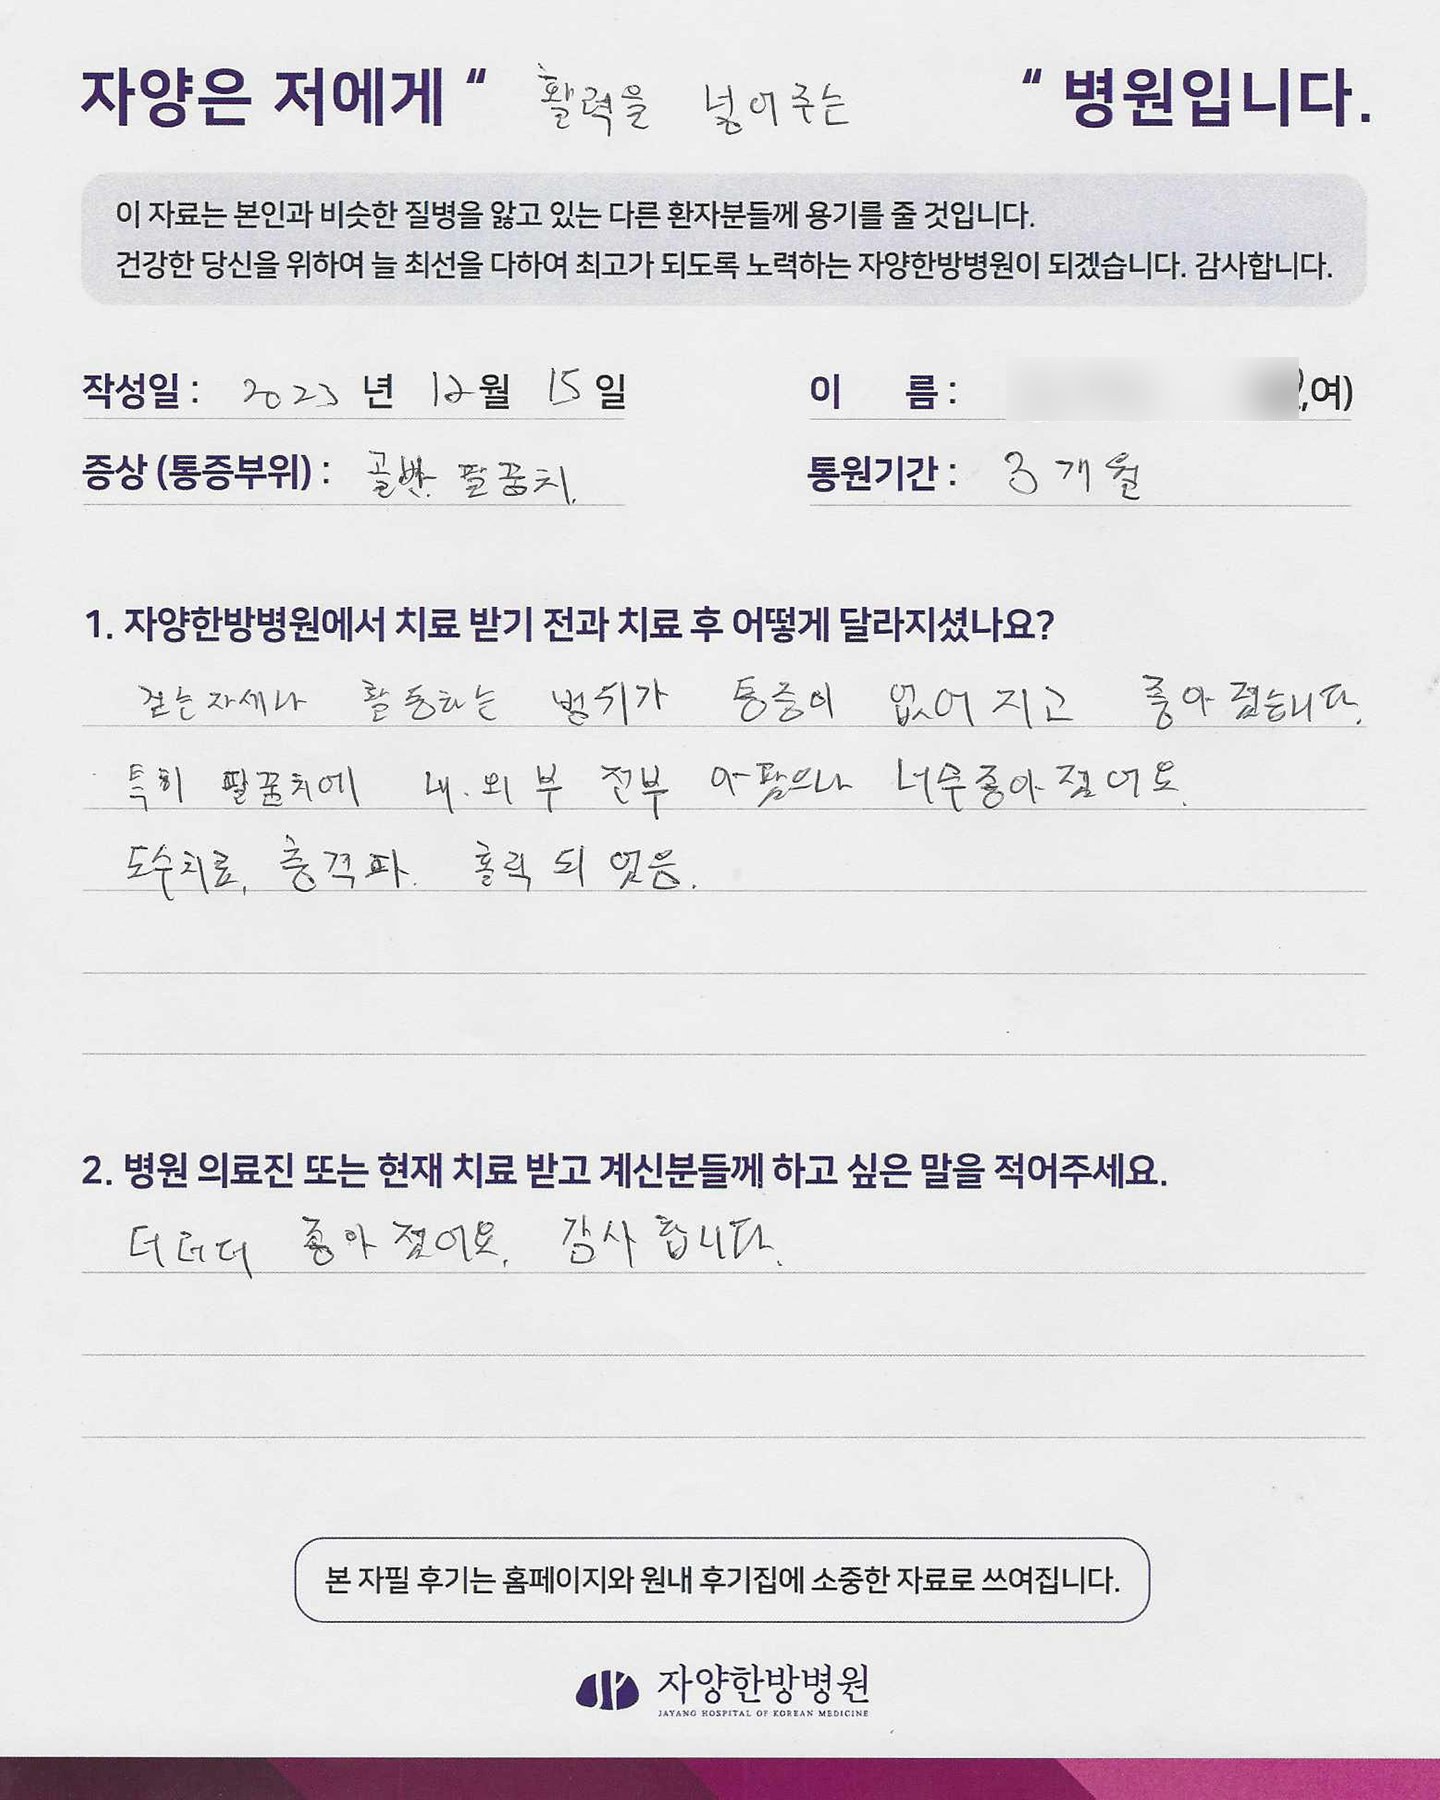 자양은 저에게 “ 활력을 넣어주는 “ 병원입니다.
이 자료는 본인과 비슷한 질병을 앓고 있는 다른 환자분들께 용기를 줄 것입니다.
건강한 당신을 위하여 늘 최선을 다하여 최고가 되도록 노력하는 자양한방병원이 되겠습니다. 감사합니다.
작성일 : 2023 년 12월 15일 이 름 : ,여)
증상 (통증부위) : 골반. 팔꿈치. 통원기간 : 3개월
1. 자양한방병원에서 치료 받기 전과 치료 후 어떻게 달라지셨나요?
걷는자세나 활동하는 범위가 통증이 없어 지고 좋아 졌습니다.
특히 팔꿈치에 내.외 부 전부 아팠으나 너무좋아 졌어요.
도수치료, 충격파. 되 었음.
2. 병원 의료진 또는 현재 치료 받고 계신분들께 하고 싶은 말을 적어주세요.
더더더 좋아 졌어요. 감사 합니다.
본 자필 후기는 홈페이지와 원내 후기집에 소중한 자료로 쓰여집니다.
자양한방병원
JAYANG HOSPITAL OF KOREAN MEDICINE